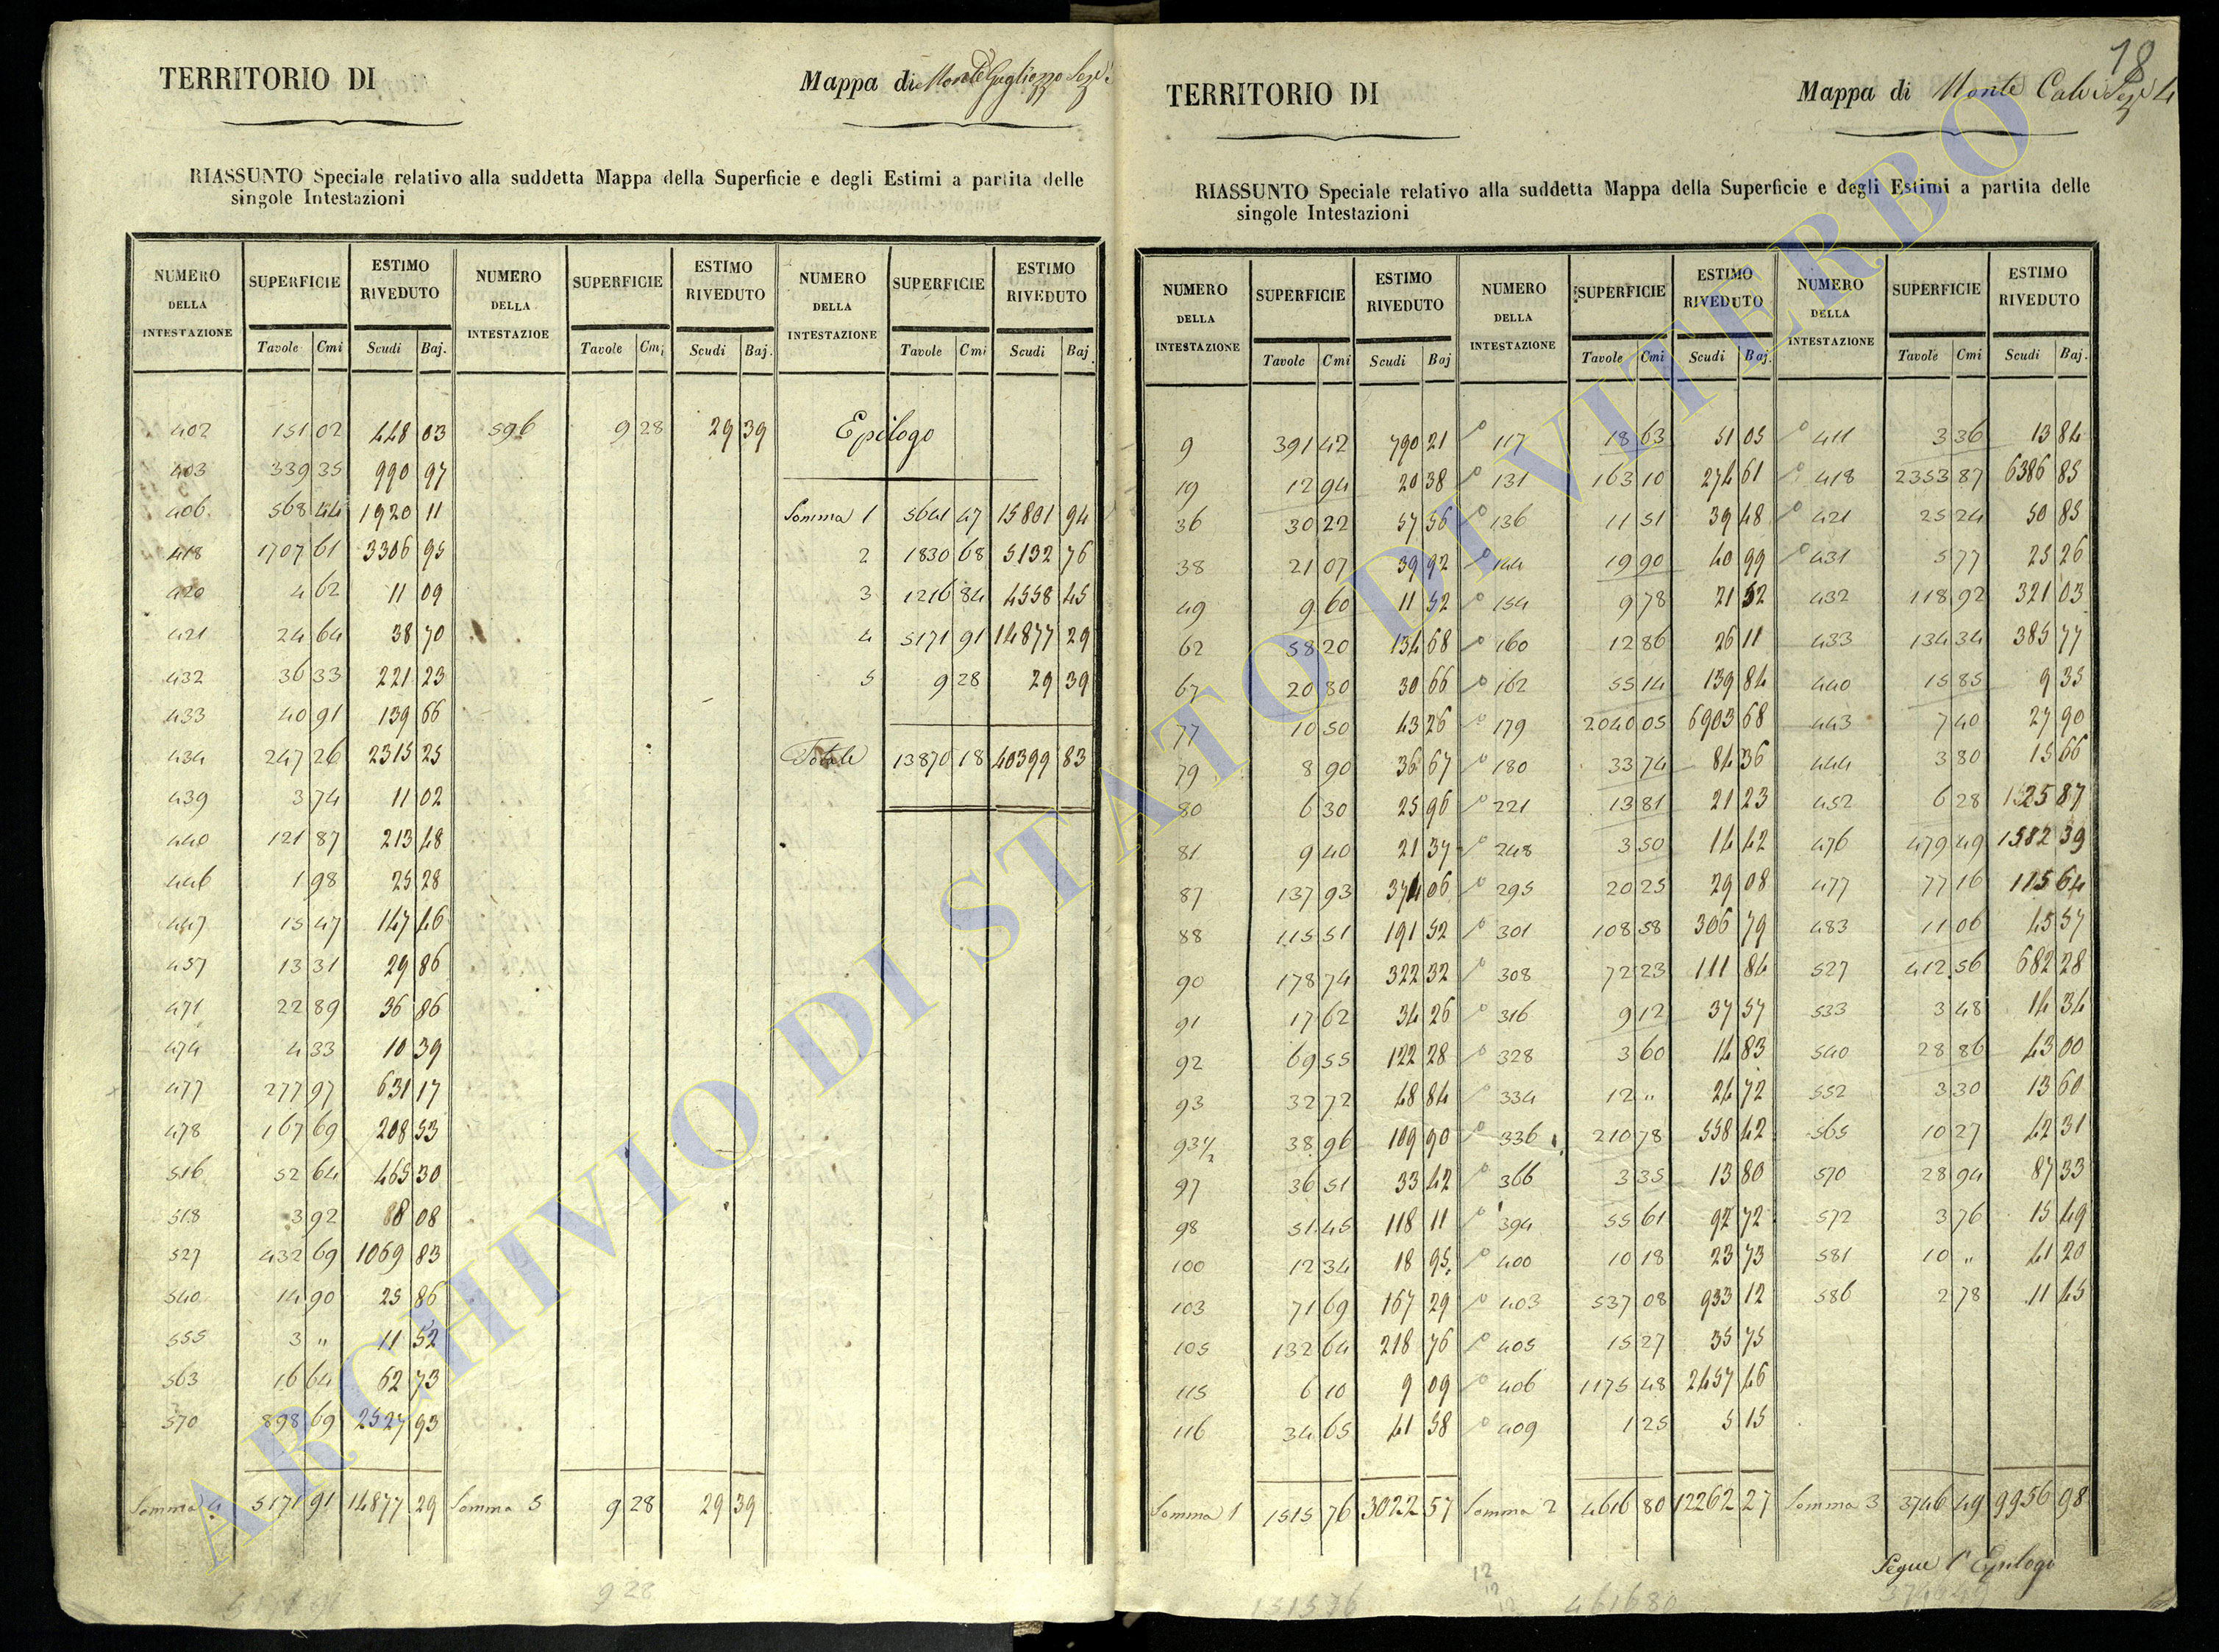 TERRITORIO DI
Mappa di Monte
RIASSUNTO Speciale relativo alla suddetta Mappa della Superficie e degli Estimi a partita delle
singole Intestazioni
NUMERO DELLA INTESTAZIONE SUPERFICIE ESTIMO RIVEDUTO NUMERO DELLA INTESTAZIOE SUPERFICIE ESTIMO RIVEDUTO NUMERO DELLA INTESTAZIONE SUPERFICIE ESTIMO RIVEDUTO
Tavole Cmi Scudi Baj. Tavole Cmi Scudi Baj. Tavole Cmi Scudi Baj.
402 151 02 448 03 596 9 28 29 39 Epilogo
403 339 35 990 97
406 568 44 1920 11 Somma 1 5641 47 15801 94
418 1707 61 3306 95 2 1830 68 5132 76
420 4 62 11 09 3 1216 84 4558 45
421 24 64 38 70 4 5171 91 14877 29
432 36 33 221 23 5 9 28 29 39
433 40 91 139 66
434 247 26 2315 25 Totale 13870 18 40399 83
439 3 74 11 02
440 121 87 213 48
446 1 98 25 28
447 15 47 147 46
457 13 31 29 86
471 22 89 36 86
474 4 33 10 39
477 277 97 631 17
478 167 69 208 53
516 52 64 465 30
518 3 92 88 08
527 432 69 1069 83
540 14 90 25 86
555 3 " 11 52
563 16 64 62 73
570 898 69 2527 93
Somma 4 5171 91 14877 29 Somma 5 9 28 29 39
9 28
18
TERRITORIO DI
Mappa di Monte Calvi Sez. 4
RIASSUNTO Speciale relativo alla suddetta Mappa della Superficie e degli Estimi a partita delle
singole Intestazioni
NUMERO DELLA INTESTAZIONE SUPERFICIE ESTIMO RIVEDUTO NUMERO DELLA INTESTAZIONE SUPERFICIE ESTIMO RIVEDUTO NUMERO DELLA INTESTAZIONE SUPERFICIE ESTIMO RIVEDUTO
Tavole Cmi Scudi Baj Tavole Cmi Scudi Baj. Tavole Cmi Scudi Baj.
9 391 42 790 21 117 18 63 51 05 411 3 36 13 84
19 12 94 20 38 131 163 10 274 61 418 2353 87 6386 85
36 30 22 57 56 136 11 51 39 48 421 25 24 50 85
38 21 07 39 92 144 19 90 40 99 431 5 77 25 26
49 9 60 11 52 154 9 78 21 52 432 118 92 321 03
62 58 20 134 68 160 12 86 26 11 433 134 34 385 77
67 20 80 30 66 162 55 14 139 84 440 15 85 9 35
77 10 50 43 26 179 2040 05 6903 68 443 7 40 27 90
79 8 90 36 67 180 33 74 84 36 444 3 80 15 66
80 6 30 25 96 221 13 81 21 23 452 6 28 25 87
81 9 40 21 37 248 3 50 14 42 476 479 49 1582 39
87 137 93 374 06 295 20 25 29 08 477 77 16 115 64
88 115 51 191 52 301 108 58 306 79 483 11 06 45 57
90 178 74 322 32 308 72 23 111 84 527 412 56 682 28
91 17 62 34 26 316 9 12 37 57 533 3 48 14 34
92 69 55 122 28 328 3 60 14 83 540 28 86 43 00
93 32 72 48 84 334 12 " 24 72 552 3 30 13 60
93 1/2 38 96 109 90 336 210 78 558 42 565 10 27 42 31
97 36 51 33 42 366 3 35 13 80 570 28 94 87 33
98 51 45 118 11 394 55 61 92 72 572 3 76 15 49
100 12 34 18 95 400 10 18 23 73 581 10 " 41 20
103 71 69 167 29 403 537 08 933 12 586 2 78 11 45
105 132 64 218 76 405 15 27 35 75
115 6 10 9 09 406 1175 48 2457 46
116 34 65 41 58 409 1 25 5 15
Somma 1 1515 76 3022 57 Somma 2 4616 80 12262 27 Somma 3 3746 49 9956 98
Segue l'Epilogo
1515 76 4616 80 3746 49
ARCHIVIO DI STATO DI VITERBO